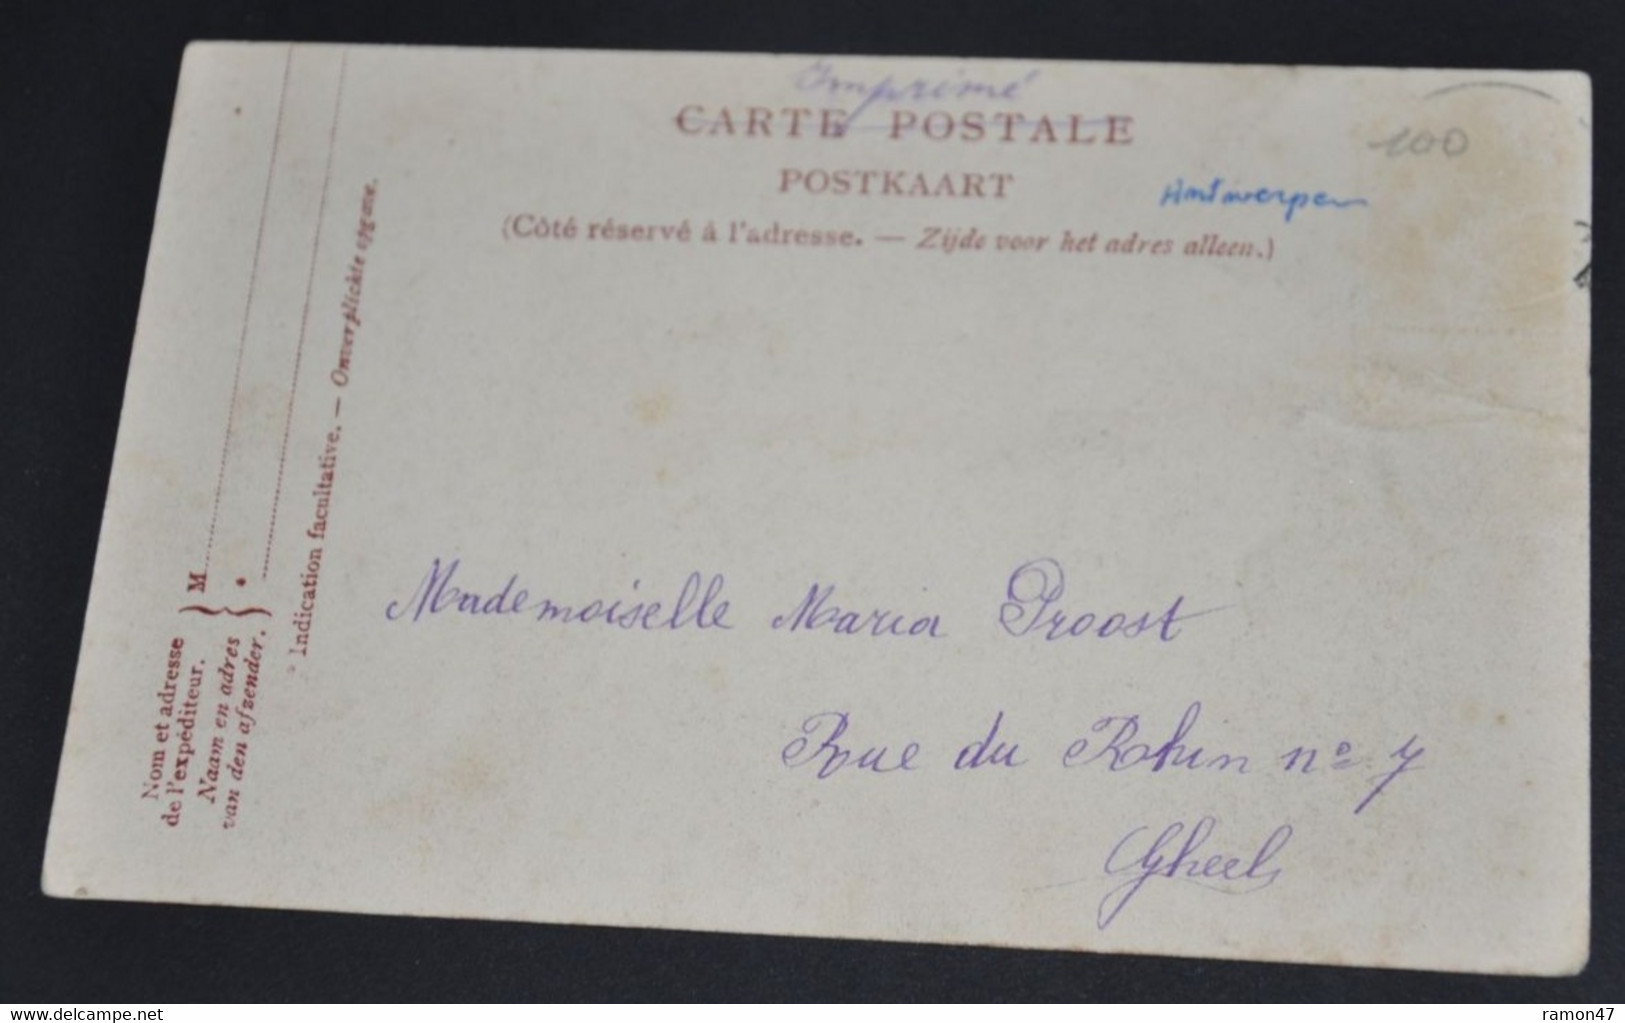 Imprimé
CARTE POSTALE
100
POSTKAART
Antwerpen
(Côté réservé à l'adresse. — Zijde voor het adres alleen.)
Mademoiselle Maria Proost
Rue du Rhin nº 7
Gheel
Nom et adresse
de l'expéditeur.
Naam en adres
van den afzender.
M
* Indication facultative. — Onverplichte opgave.
www.delcampe.net
ramon47